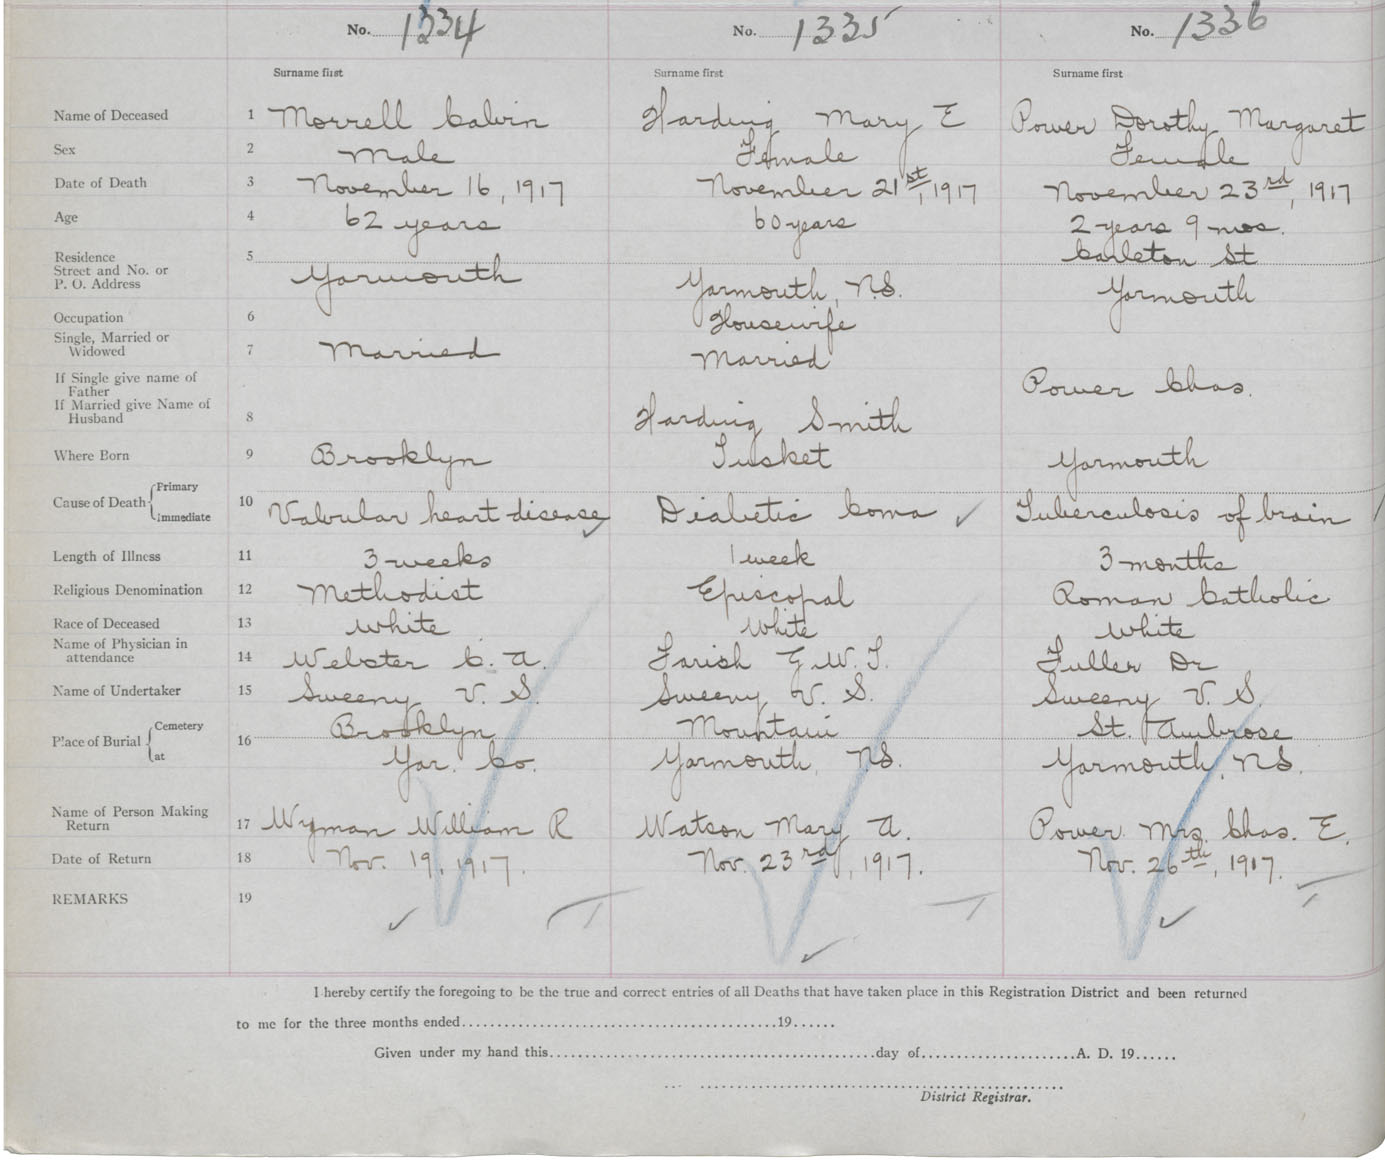 No. 1334 No. 1335 No. 1336
Surname first Surname first Surname first
Name of Deceased 1 Morrell Calvin Harding Mary E Power Dorothy Margaret
Sex 2 Male Female Female
Date of Death 3 November 16, 1917 November 21st, 1917 November 23rd, 1917
Age 4 62 years 60 years 2 years 9 mos.
Residence 5 Carleton St
Street and No. or
P. O. Address Yarmouth Yarmouth, N.S. Yarmouth
Occupation 6 Housewife
Single, Married or
Widowed 7 Married Married
If Single give name of
Father Power Chas.
If Married give Name of
Husband 8 Harding Smith
Where Born 9 Brooklyn Tusket Yarmouth
Cause of Death { Primary
Immediate 10 Valvular heart disease Diabetic Coma Tuberculosis of brain
Length of Illness 11 3 weeks 1 week 3 months
Religious Denomination 12 Methodist Episcopal Roman Catholic
Race of Deceased 13 White White White
Name of Physician in
attendance 14 Webster C. A. Farish G. W. T. Fuller Dr
Name of Undertaker 15 Sweeny V. S. Sweeny V. S. Sweeny V. S.
Place of Burial { Cemetery 16 Brooklyn Mountain St. Ambrose
at Yar. Co. Yarmouth, N.S. Yarmouth, N.S.
Name of Person Making
Return 17 Wyman William R Watson Mary A. Power Mrs. Chas. E.
Date of Return 18 Nov. 19, 1917. Nov. 23rd, 1917. Nov. 26th, 1917.
REMARKS 19
I hereby certify the foregoing to be the true and correct entries of all Deaths that have taken place in this Registration District and been returned
to me for the three months ended..........19......
Given under my hand this..........day of..........A. D. 19......
District Registrar.